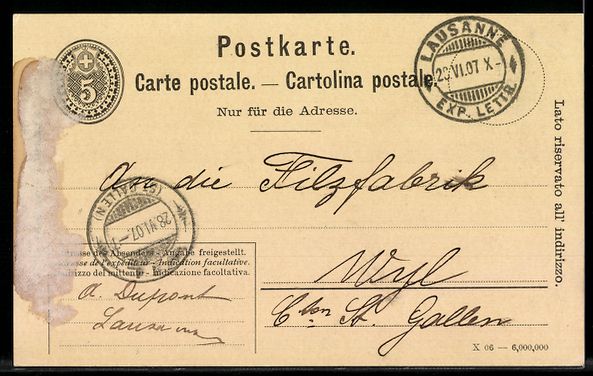 Postkarte.
Carte postale. — Cartolina postale.
Nur für die Adresse.
5
LAUSANNE
28.VI.07 X-
EXP. LETTR.
Lato riservato all' indirizzo.
An die Filzfabrik
Wyl
Cton St. Gallen
(ST. GALLEN)
28.VI.07
sse des Absenders - Angabe freigestellt.
sse de l'expéditeur - Indication facultative.
dirizzo del mittente - Indicazione facoltativa.
A. Dupont
Lausanne
X 06 — 6,000,000